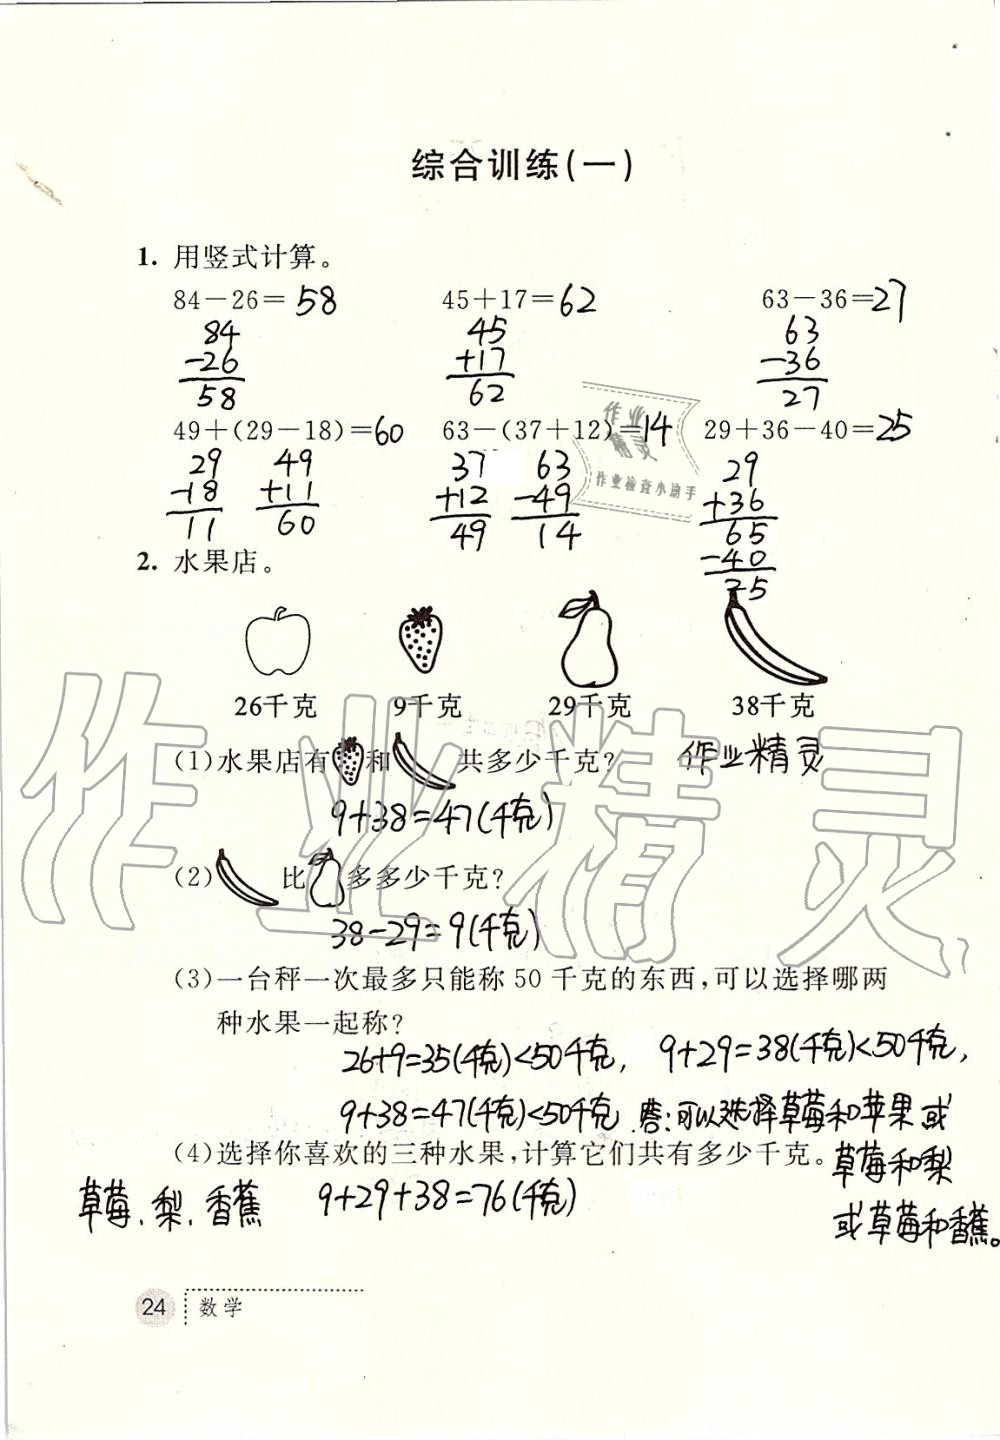 综合训练(一)
1. 用竖式计算。
84－26＝58 45＋17＝62 63－36＝27
84 45 63
-26 +17 -36
58 62 27
49＋(29－18)＝60 63－(37＋12)＝14 29＋36－40＝25
29 49 37 63 29
-18 +11 +12 -49 +36
11 60 49 14 65
-40
25
作业
精灵
作业检查小助手
2. 水果店。
26千克 9千克 29千克 38千克
(1)水果店有 和 共多少千克? 作业精灵
9+38=47(千克)
(2) 比 多多少千克?
38-29=9(千克)
(3)一台秤一次最多只能称 50 千克的东西,可以选择哪两
种水果一起称?
26+9=35(千克)<50千克, 9+29=38(千克)<50千克,
9+38=47(千克)<50千克. 答:可以选择草莓和苹果或
(4)选择你喜欢的三种水果,计算它们共有多少千克。 草莓和梨
草莓、梨、香蕉 9+29+38=76(千克)
或草莓和香蕉。
作业精灵
24 数学